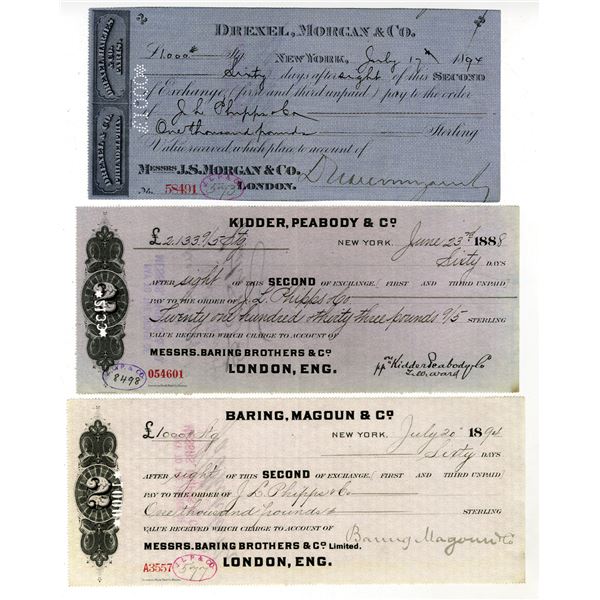 DREXEL, MORGAN & CO.
£1000 Stg NEW YORK, July 1894
Sixty days after sight of this SECOND
of Exchange (first and third unpaid) pay to the order
of J L Phipps & Co
One thousand pounds Sterling
Value received, which place to account of
MESSRS. J.S. MORGAN & CO.
LONDON.
No. 58491
J. L. P. & CO.
DREXEL HARJES & CO. PARIS.
DREXEL & CO. PHILADELPHIA.
£1000
KIDDER, PEABODY & CO
£2.133 9/5 Stg NEW YORK, June 23rd 1888
Sixty DAYS
AFTER sight OF THIS SECOND OF EXCHANGE (FIRST AND THIRD UNPAID)
PAY TO THE ORDER OF J. L. Phipps & Co.
Twenty one hundred & thirty three pounds 9/5 STERLING
VALUE RECEIVED WHICH CHARGE TO ACCOUNT OF
MESSRS. BARING BROTHERS & CO
LONDON, ENG.
pp Kidder Peabody & Co
054601
8498
2
BARING, MAGOUN & CO
£1000 Stg NEW YORK, July 20 1894
Sixty DAYS
AFTER sight OF THIS SECOND OF EXCHANGE (FIRST AND THIRD UNPAID)
PAY TO THE ORDER OF J L Phipps & Co.
One thousand pounds STERLING
VALUE RECEIVED WHICH CHARGE TO ACCOUNT OF
MESSRS. BARING BROTHERS & CO Limited.
LONDON, ENG.
Baring Magoun & Co
A3557
J. L. P. & CO.
577
2